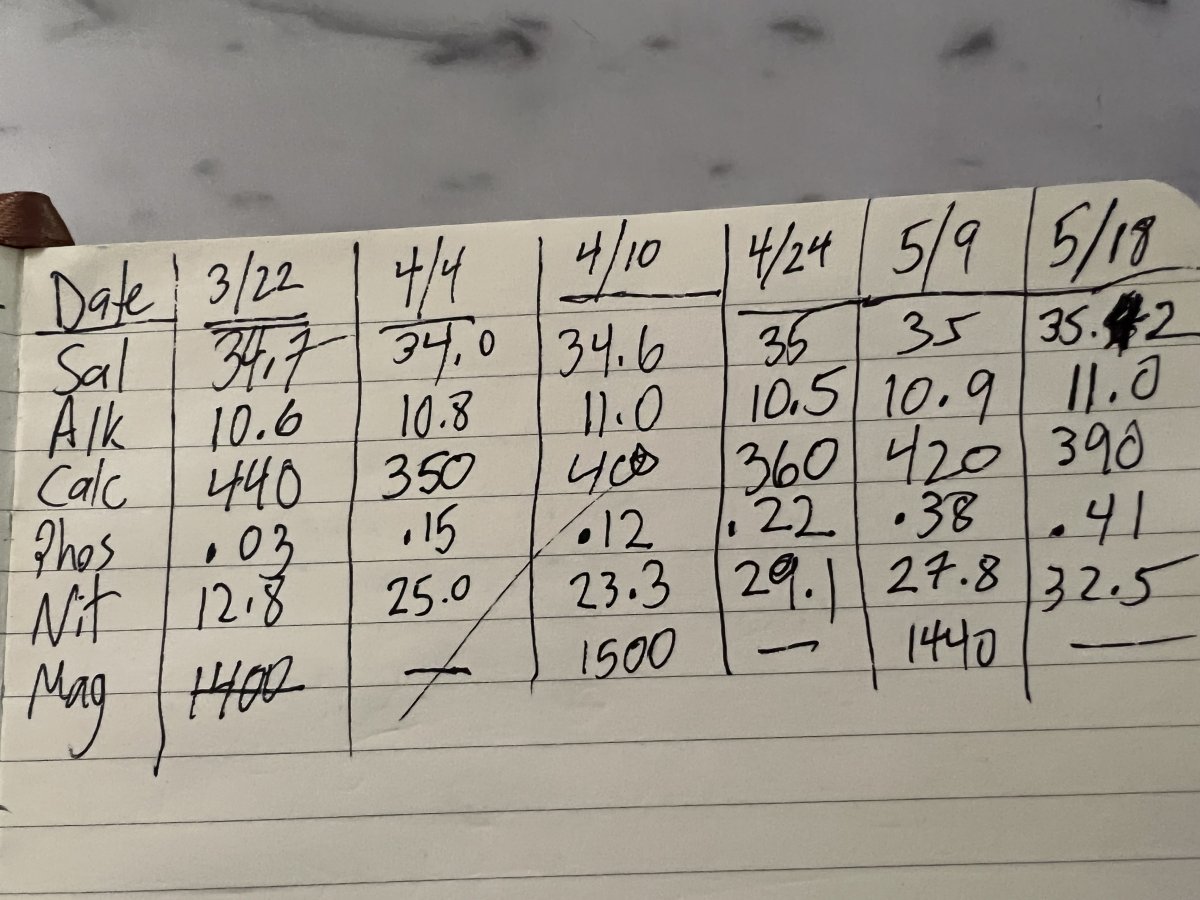 Date 3/22 4/4 4/10 4/24 5/9 5/18
Sal 34.7 34.0 34.6 35 35 35.2
Alk 10.6 10.8 11.0 10.5 10.9 11.0
Calc 440 350 400 360 420 390
Phos .03 .15 .12 .22 .38 .41
Nit 12.8 25.0 23.3 29.1 27.8 32.5
Mag 1400 — 1500 — 1440 —